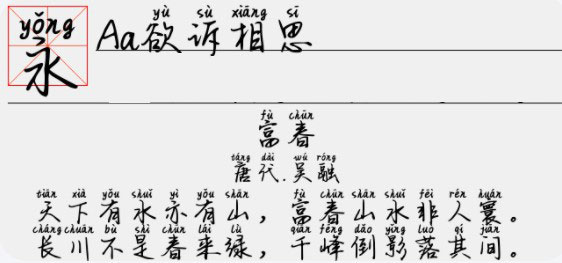 yǒng
永
yù sù xiāng sī
Aa欲诉相思
fù chūn
富春
táng dài wú róng
唐代.吴融
tiān xià yǒu shuǐ yì yǒu shān fù chūn shān shuǐ fēi rén huán
天下有水亦有山，富春山水非人寰。
cháng chuān bù shì chūn lái lǜ qiān fēng dǎo yǐng luò qí jiān
长川不是春来绿，千峰倒影落其间。